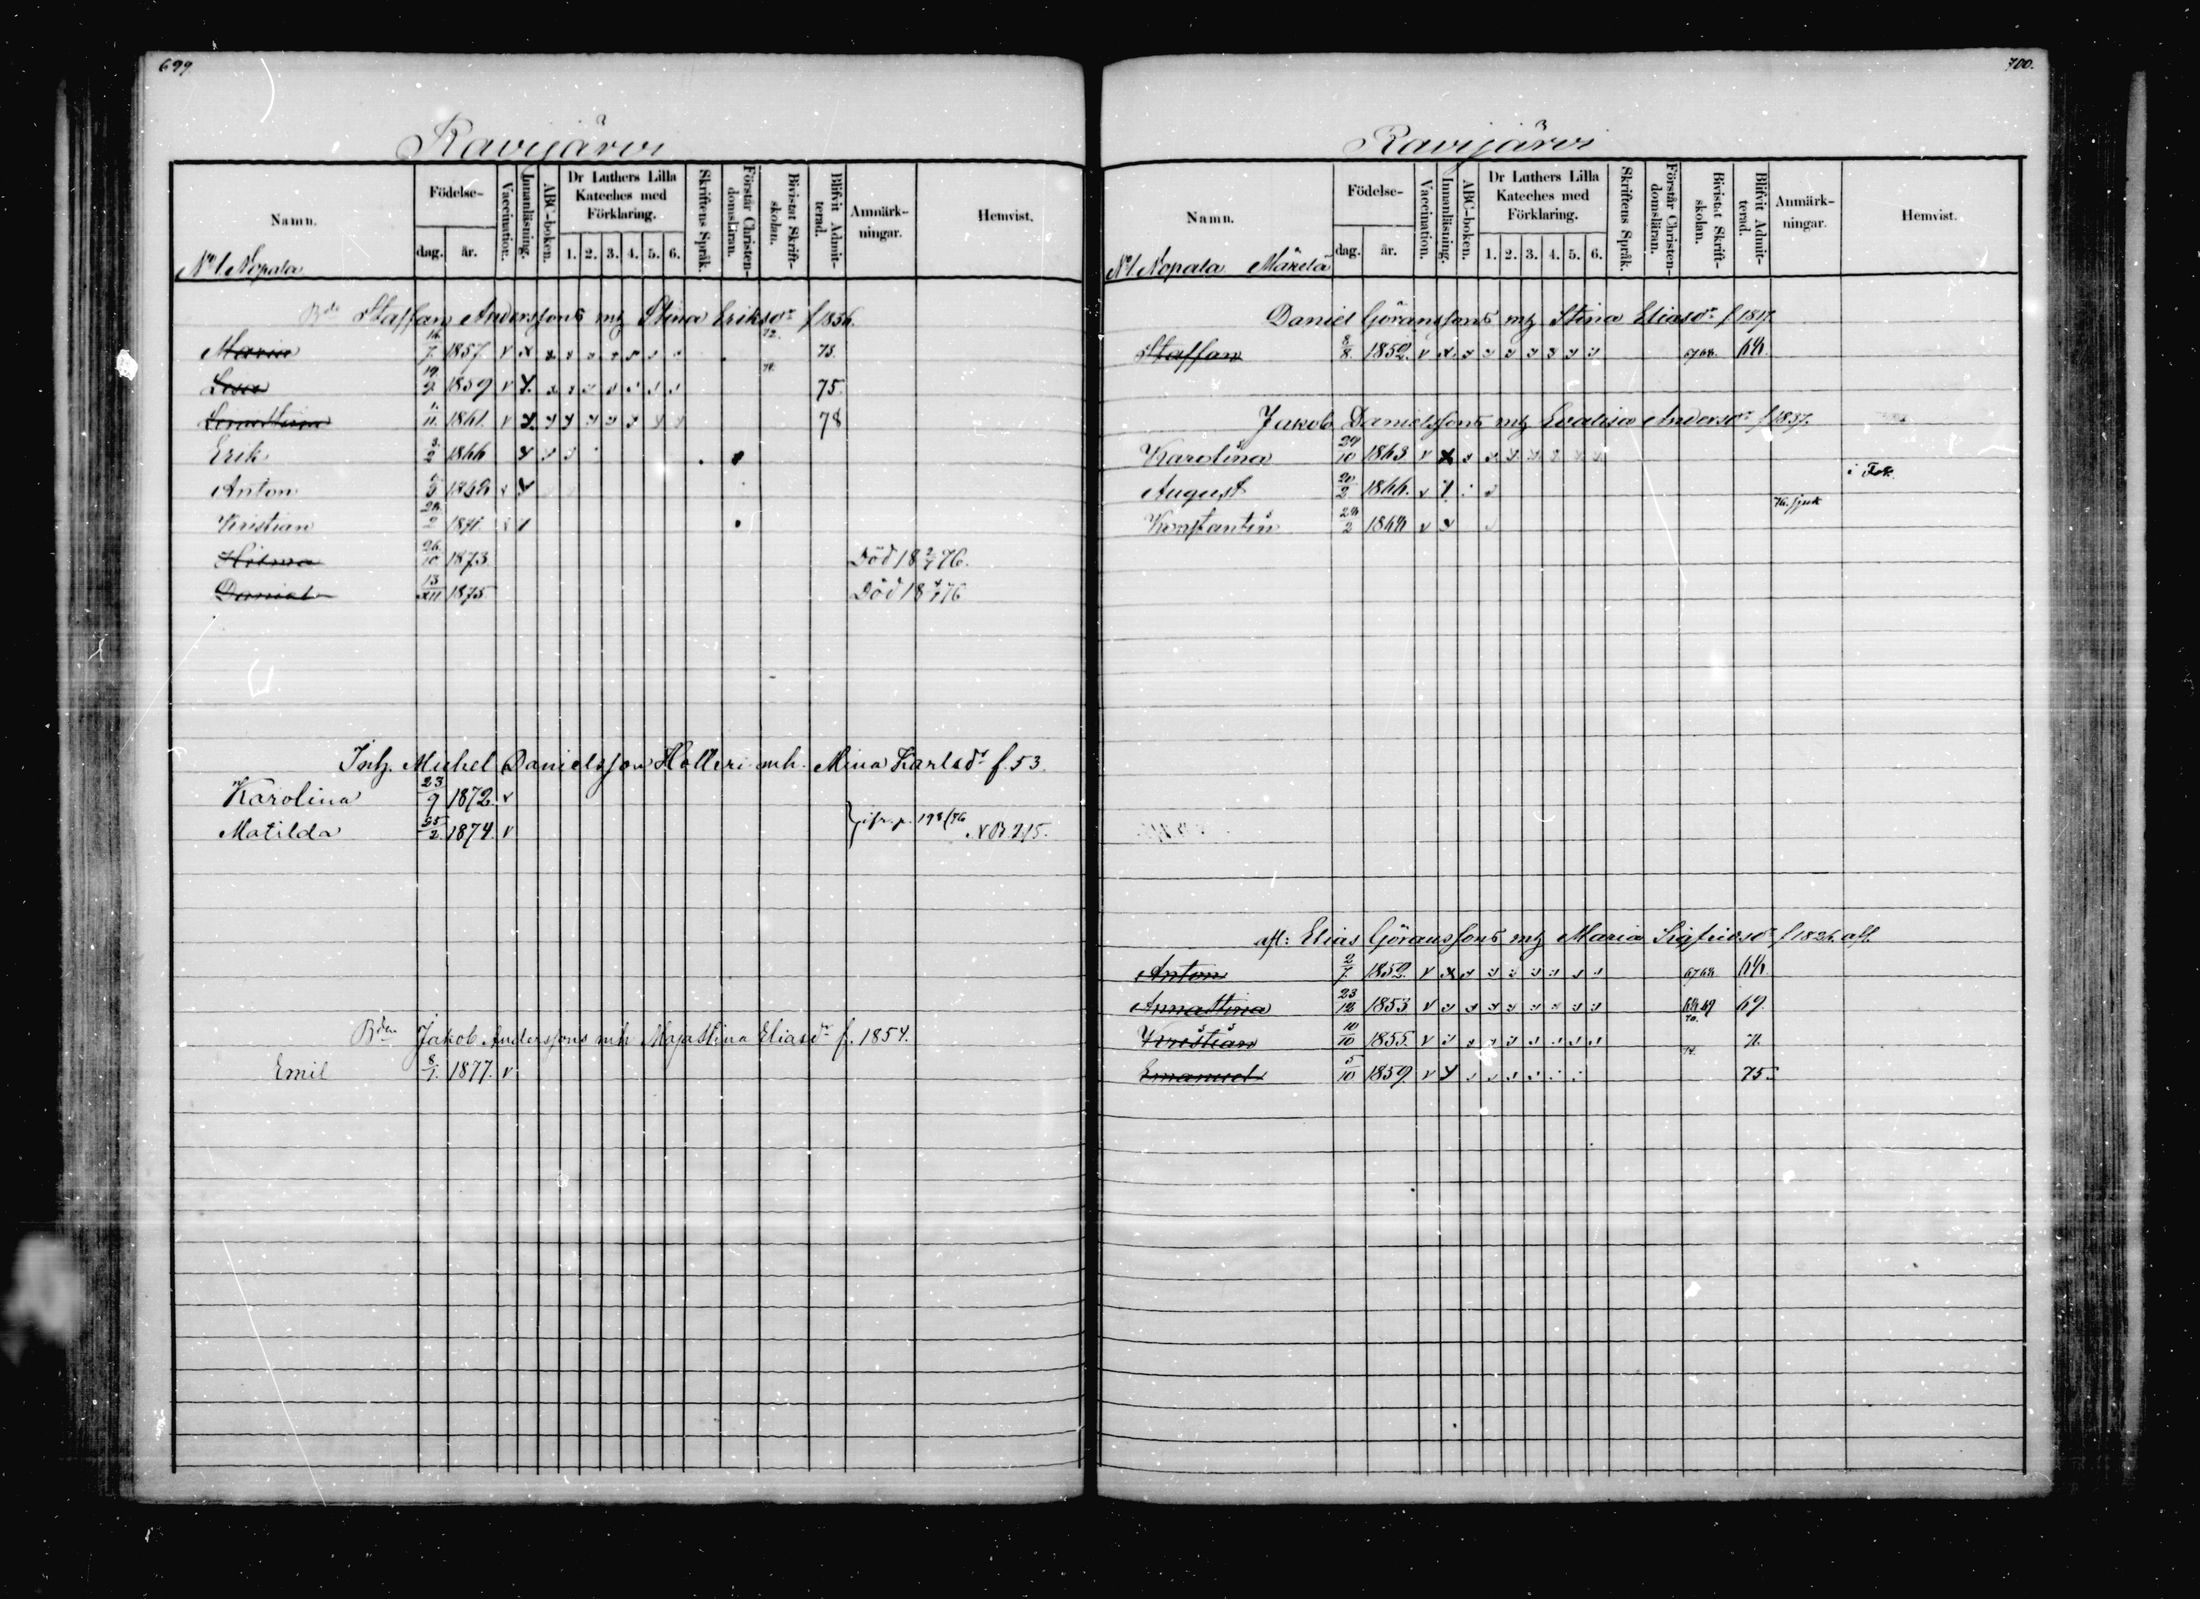 699
Ravijärvi
Namn. Födelse- dag. år. Vaccination. Innanläsning. ABC-boken. Dr Luthers Lilla Kateches med Förklaring. 1. 2. 3. 4. 5. 6. Skriftens Språk. Förstår Christendomsläran. Bivistat Skriftskolan. Blifvit Admitterad. Anmärkningar. Hemvist.
No 1 Nopala
Staffan Anderssons mh Stina Eriksdr f 1836.
Maria 7. 1857. v 72. 73.
Lisa 19. 1859 v 75.
1. 11. 1861. v 78
Erik 3. 2 1866
Anton
Kristian 2
Hilma 26. 10 1873. Död 18 2/7 76.
Daniel 13 XII 1875 Död 18 76
Inh. Mickel Danielsson Holleri mh. Mina Karlsdr f. 53.
Karolina 23 9 1872. v
Matilda 25 2. 1874. v p. 198/76 NB. 215.
Bden Jakob Anderssons mh Majastina Eliasdr f. 1854.
Emil 8 1. 1877. v
700.
Ravijärvi
Namn. Födelse- dag. år. Vaccination. Innanläsning. ABC-boken. Dr Luthers Lilla Kateches med Förklaring. 1. 2. 3. 4. 5. 6. Skriftens Språk. Förstår Christendomsläran. Bivistat Skriftskolan. Blifvit Admitterad. Anmärkningar. Hemvist.
No 1 Nopala Märela
Daniel Göranssons mh Stina Eliasdr f 1817.
Staffan 8 8. 1852. v 67 68. 68.
Jakob Danielssons mh Evalisa Andersdr f 1837.
Karolina 29 10 1863 v
August 20 2 1866. v
Konstantin 28 2 1868 v
afl: Elias Göranssons mh Maria Sigfridsdr f 1826. afl.
Anton 2 7. 1852. v 67 68 68.
Annastina 23 12 1853 v 68 69 69.
Kristian 10 10 1855. v 70. 71.
Emanuel 5 10 1859. v 74. 75.